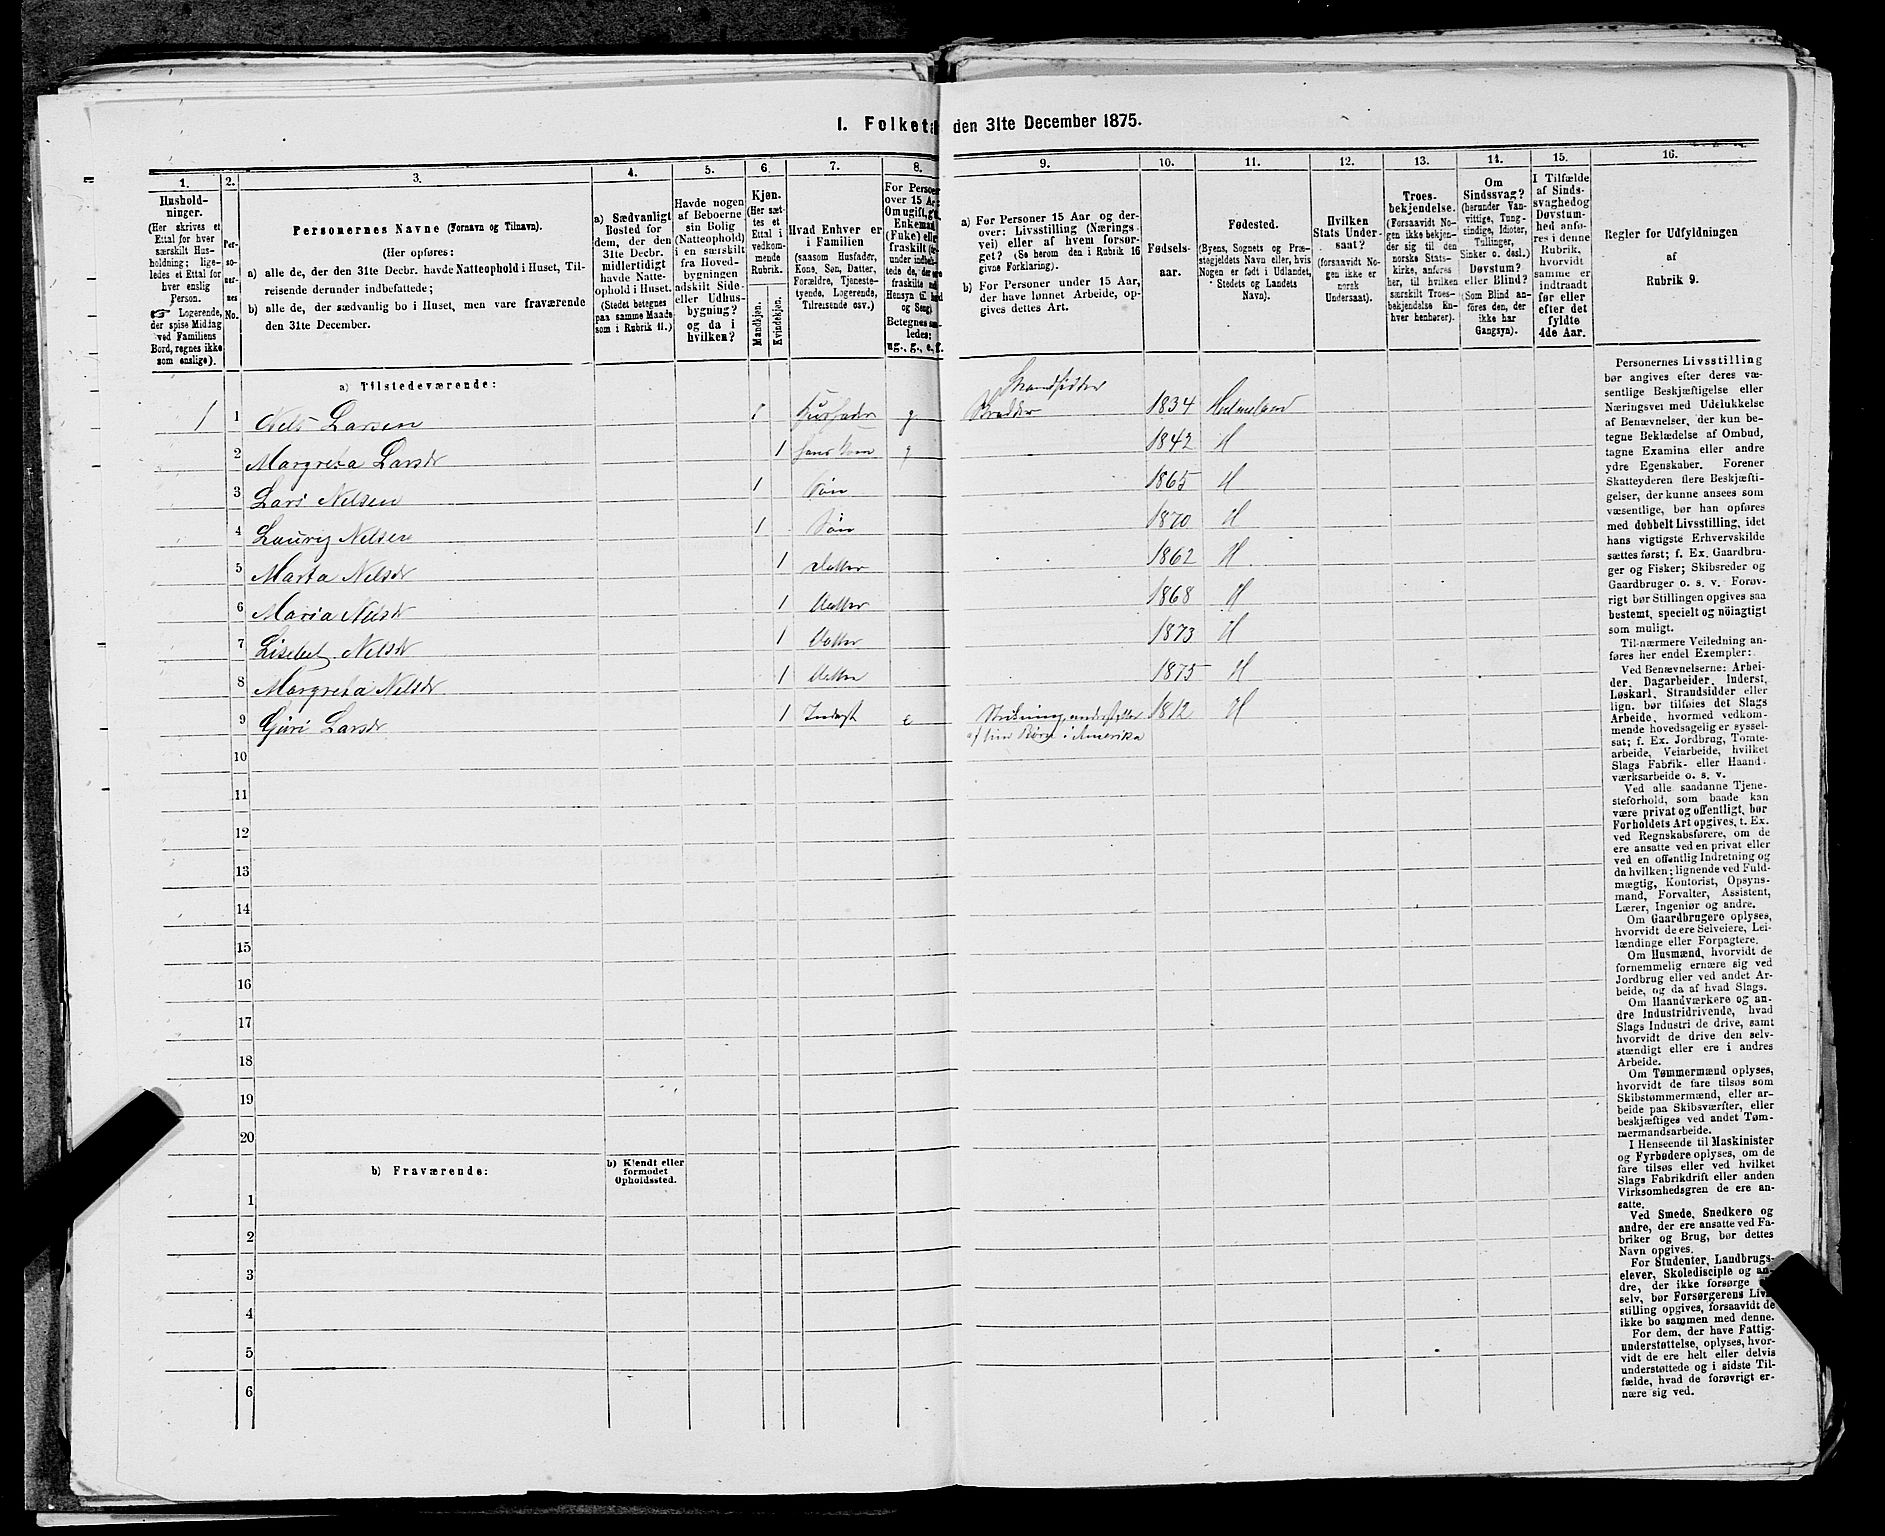 I. Folketæ den 31te December 1875.
1.
Hushold-
ninger.
(Her skrives et
Ettal for hver
særskilt Hus-
holdning; lige-
ledes et Ettal for
hver enslig
Person.
☞ Logerende,
der spise Middag
ved Familiens
Bord, regnes ikke
som enslige).
2.
Per-
so-
ner-
nes
No.
3.
Personernes Navne (Fornavn og Tilnavn).
(Her opføres:
a) alle de, der den 31te Decbr. havde Natteophold i Huset, Til-
reisende derunder indbefattede;
b) alle de, der sædvanlig bo i Huset, men vare fraværende
den 31te December.
4.
a) Sædvanligt
Bosted for
dem, der den
31te Decbr.
midlertidigt
havde Natte-
ophold i Huset.
(Stedet betegnes
paa samme Maade
som i Rubrik 11.)
5.
Havde nogen
af Beboerne
sin Bolig
(Natteophold)
i en særskilt
fra Hoved-
bygningen
adskilt Side-
eller Udhus-
bygning?
og da i
hvilken?
6.
Kjøn.
(Her sæt-
tes et
Ettal i
vedkom-
mende
Rubrik.
Mandkjøn.
Kvindekjøn.
7.
Hvad Enhver er
i Familien
(saasom Husfader,
Kone, Søn, Datter,
Forældre, Tjeneste-
tyende, Logerende,
Tilreisende osv.)
8.
For Persone
over 15 Aar:
Om ugift, gi
Enkemand
(Fuke) elle
fraskilt
under indbefat-
tede de, der ere
fraskilte
Hensyn til Bord
og Seng)
Betegnes saa-
ledes:
ug., g., e., f.
9.
a) For Personer 15 Aar og der-
over: Livsstilling (Nærings-
vei) eller af hvem forsør-
get? (Se herom den i Rubrik 16
givne Forklaring).
b) For Personer under 15 Aar,
der have lønnet Arbeide, op-
gives dettes Art.
10.
Fødsels-
aar.
11.
Fødested.
(Byens, Sognets og Præ-
stegjeldets Navn eller, hvis
Nogen er født i Udlandet,
Stedets og Landets
Navn).
12.
Hvilken
Stats Under-
saat?
(forsaavidt No-
gen ikke er
norsk
Undersaat).
13.
Troes-
bekjendelse.
(Forsaavidt No-
gen ikke bekjen-
der sig til den
norske Stats-
kirke, anføres
her, til hvilken
særskilt Troes-
bekjendelse En-
hver henhører).
14.
Om
Sindssvag?
(herunder Van-
vittige, Tung-
sindige, Idioter,
Tullinger,
Sinker o. desl.)
Døvstum?
eller Blind?
(Som Blind an-
føres den, der
ikke har
Gangsyn).
15.
I Tilfælde
af Sinds-
svaghed og
Døvstum-
hed anfø-
res i denne
Rubrik,
hvorvidt
samme er
indtraadt
før eller
efter det
fyldte
4de Aar.
16.
Regler for Udfyldningen
af
Rubrik 9.
a) Tilstedeværende:
Strandsidder
1 1 Nels Larsen 1 Husfader g Kræmmer 1834 Hosanger
2 Margreta Larsdr 1 hans Kone g 1842 H
3 Lars Nelsen 1 Søn 1865 H
4 Lauriz Nelsen 1 Søn 1870 H
5 Marta Nelsdr 1 Datter 1862 H
6 Maria Nelsdr 1 Datter 1868 H
7 Lisebet Nelsdr 1 Datter 1873 H
8 Margreta Nelsdr 1 Datter 1875 H
9 Guri Larsdr 1 e 1812 H
af sine Børn i Amerika
10
11
12
13
14
15
16
17
18
19
20
b) Fraværende:
b) Kjendt eller
formodet
Opholdssted.
1
2
3
4
5
6
Personernes Livsstilling
bør angives efter deres væ-
sentlige Beskjæftigelse eller
Næringsvei med Udelukkelse
af Benævnelser, der kun be-
tegne Beklædelse af Ombud,
tagne Examina eller andre
ydre Egenskaber. Forener
Skatteyderen flere Beskjæfti-
gelser, der kunne ansees som
væsentlige, bør han opføres
med dobbelt Livsstilling, idet
hans vigtigste Erhvervskilde
sættes først; f. Ex. Gaardbru-
ger og Fisker; Skibsreder og
Gaardbruger o. s. v. Forøv-
rigt bør Stillingen opgives saa
bestemt, specielt og nøiagtigt
som muligt.
Til nærmere Veiledning an-
føres her endel Exempler:
Ved Benævnelserne: Arbei-
der, Dagarbeider, Inderst,
Løskarl, Strandsidder eller
lign. bør tilføies det Slags
Arbeide, hvormed vedkom-
mende hovedsagelig er syssel-
sat; f. Ex. Jordbrug, Tomte-
arbeide, Veiarbeide, hvilket
Slags Fabrik- eller Haand-
værksarbeide o. s. v.
Ved alle saadanne Tjene-
steforhold, som baade kan
være privat og offentligt, bør
Forholdets Art opgives, t. Ex.
ved Regnskabsførere, om de
ere ansatte ved en privat eller
ved en offentlig Indretning og
da hvilken; lignende ved Fuld-
mægtig, Kontorist, Opsyns-
mand, Forvalter, Assistent,
Lærer, Ingeniør og andre.
Om Gaardbrugere oplyses,
hvorvidt de ere Selveiere, Lei-
lændinge eller Forpagtere.
Om Husmænd, hvorvidt de
fornemmelig ernære sig ved
Jordbrug eller ved andet Ar-
beide, og da af hvad Slags.
Om Haandværkere og an-
dre Industridrivende, hvad
Slags Industri de drive, samt
hvorvidt de drive den selv-
stændigt eller ere i andres
Arbeide.
Om Tømmermænd oplyses,
hvorvidt de fare tilsøs som
Skibstømmermænd, eller ar-
beide paa Skibsværfter, eller
beskjæftiges ved andet Tøm-
mermandsarbeide.
I Henseende til Maskinister
og Fyrbødere oplyses, om de
fare tilsøs eller ved hvilket
Slags Fabrikdrift eller anden
Virksomhedsgren de ere an-
satte.
Ved Smede, Snedkere og
andre, der ere ansatte ved Fa-
briker og Brug, bør dettes
Navn opgives.
For Studenter, Landbrugs-
elever, Skoledisciple og an-
dre, der ikke forsørge
selv, bør Forsørgerens Livs-
stilling opgives, forsaavidt de
ikke bo sammen med denne.
For dem, der have Fattig-
understøttelse, oplyses, hvor-
vidt de ere helt eller delvis
understøttede og i sidste Til-
fælde, hvad de forøvrigt er-
nære sig ved.